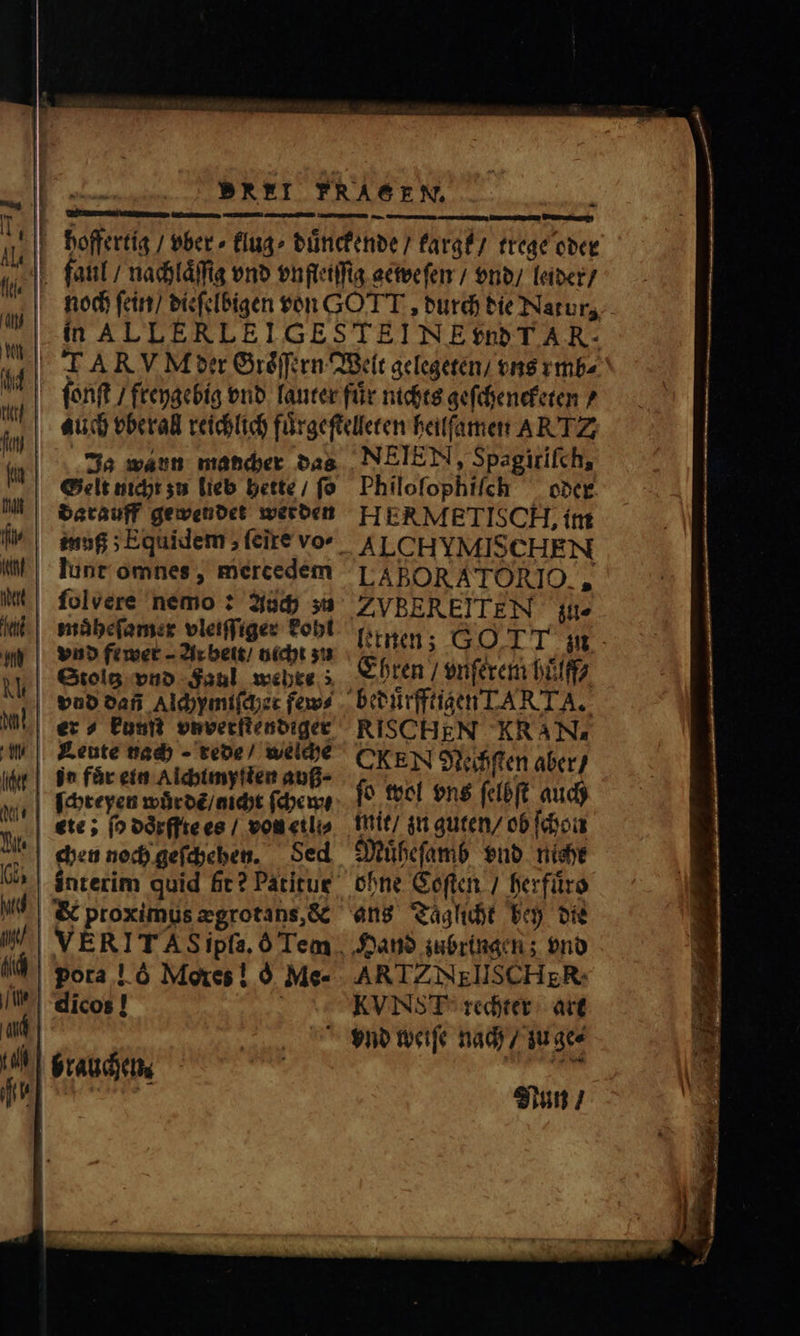 DREI FRAGEN.
hoffertig / vber⸗klug⸗dünckende / kargk / trege oder
faul / nachlåſſig vnd vnfleiſſig geweſen / vnd / leider /
noch ſein / dieſelbigen von GOTT, durch die Natur,
in ALLERLEIGESTEINE vnd TAR-
TARVM der Gröſſern Welt gelegeten / vns vmb⸗
ſonſt / freygebig vnd lauter für nichts geſchencketen /
auch vberall reichlich fürgeſtelleten heilſamen ARTZ
NEIEN, Spagiriſch,
Philoſophiſch oder
HERMETISCH, im
ALCHYMISCHEN
LABORATORIO,
ZVBEREITEN zu⸗
lernen; GOTT zu
Ehren / vnſerem hülff⸗
bedürfftigen TARTA-
RISCHEN KRAN-
CKEN Nechſten aber /
ſo wol vns ſelbſt auch
mit / zu guten / ob ſchon
Müheſamb vnd nicht
ohne Coſten / herfüro
ans Taglicht bey die
Hand zubringen; vnd
ARTZNEIISCHER
KVNST rechter art
vnd weiſe nach / zu ge⸗
brauchen.
Ja wann mancher das
Gelt nicht zu lieb hette / ſo
darauff gewendet werden
muß; Equidem, ſcire vo-
lunt omnes, mercedem
ſolvere nemo: Auch zu
müheſamer vleiſſiger kohl
vnd fewer-Arbeit / nicht zu
Stoltz vnd Faul wehre;
vnd dañ Alchymiſcher few⸗
er⸗kunſt vnverſtendiger
Leute nach-rede / welche
jn für ein Alchimyſten auß-
ſchreyen würdẽ / nicht ſchew⸗
ete; ſo dörffte es / von etli⸗
chen noch geſchehen. Sed
interim quid fit? Patitur
& proximus ægrotans, &
VERITAS ipſa. ô Tem
pora! ô Mores! ô Me-
dicos!
Nun /